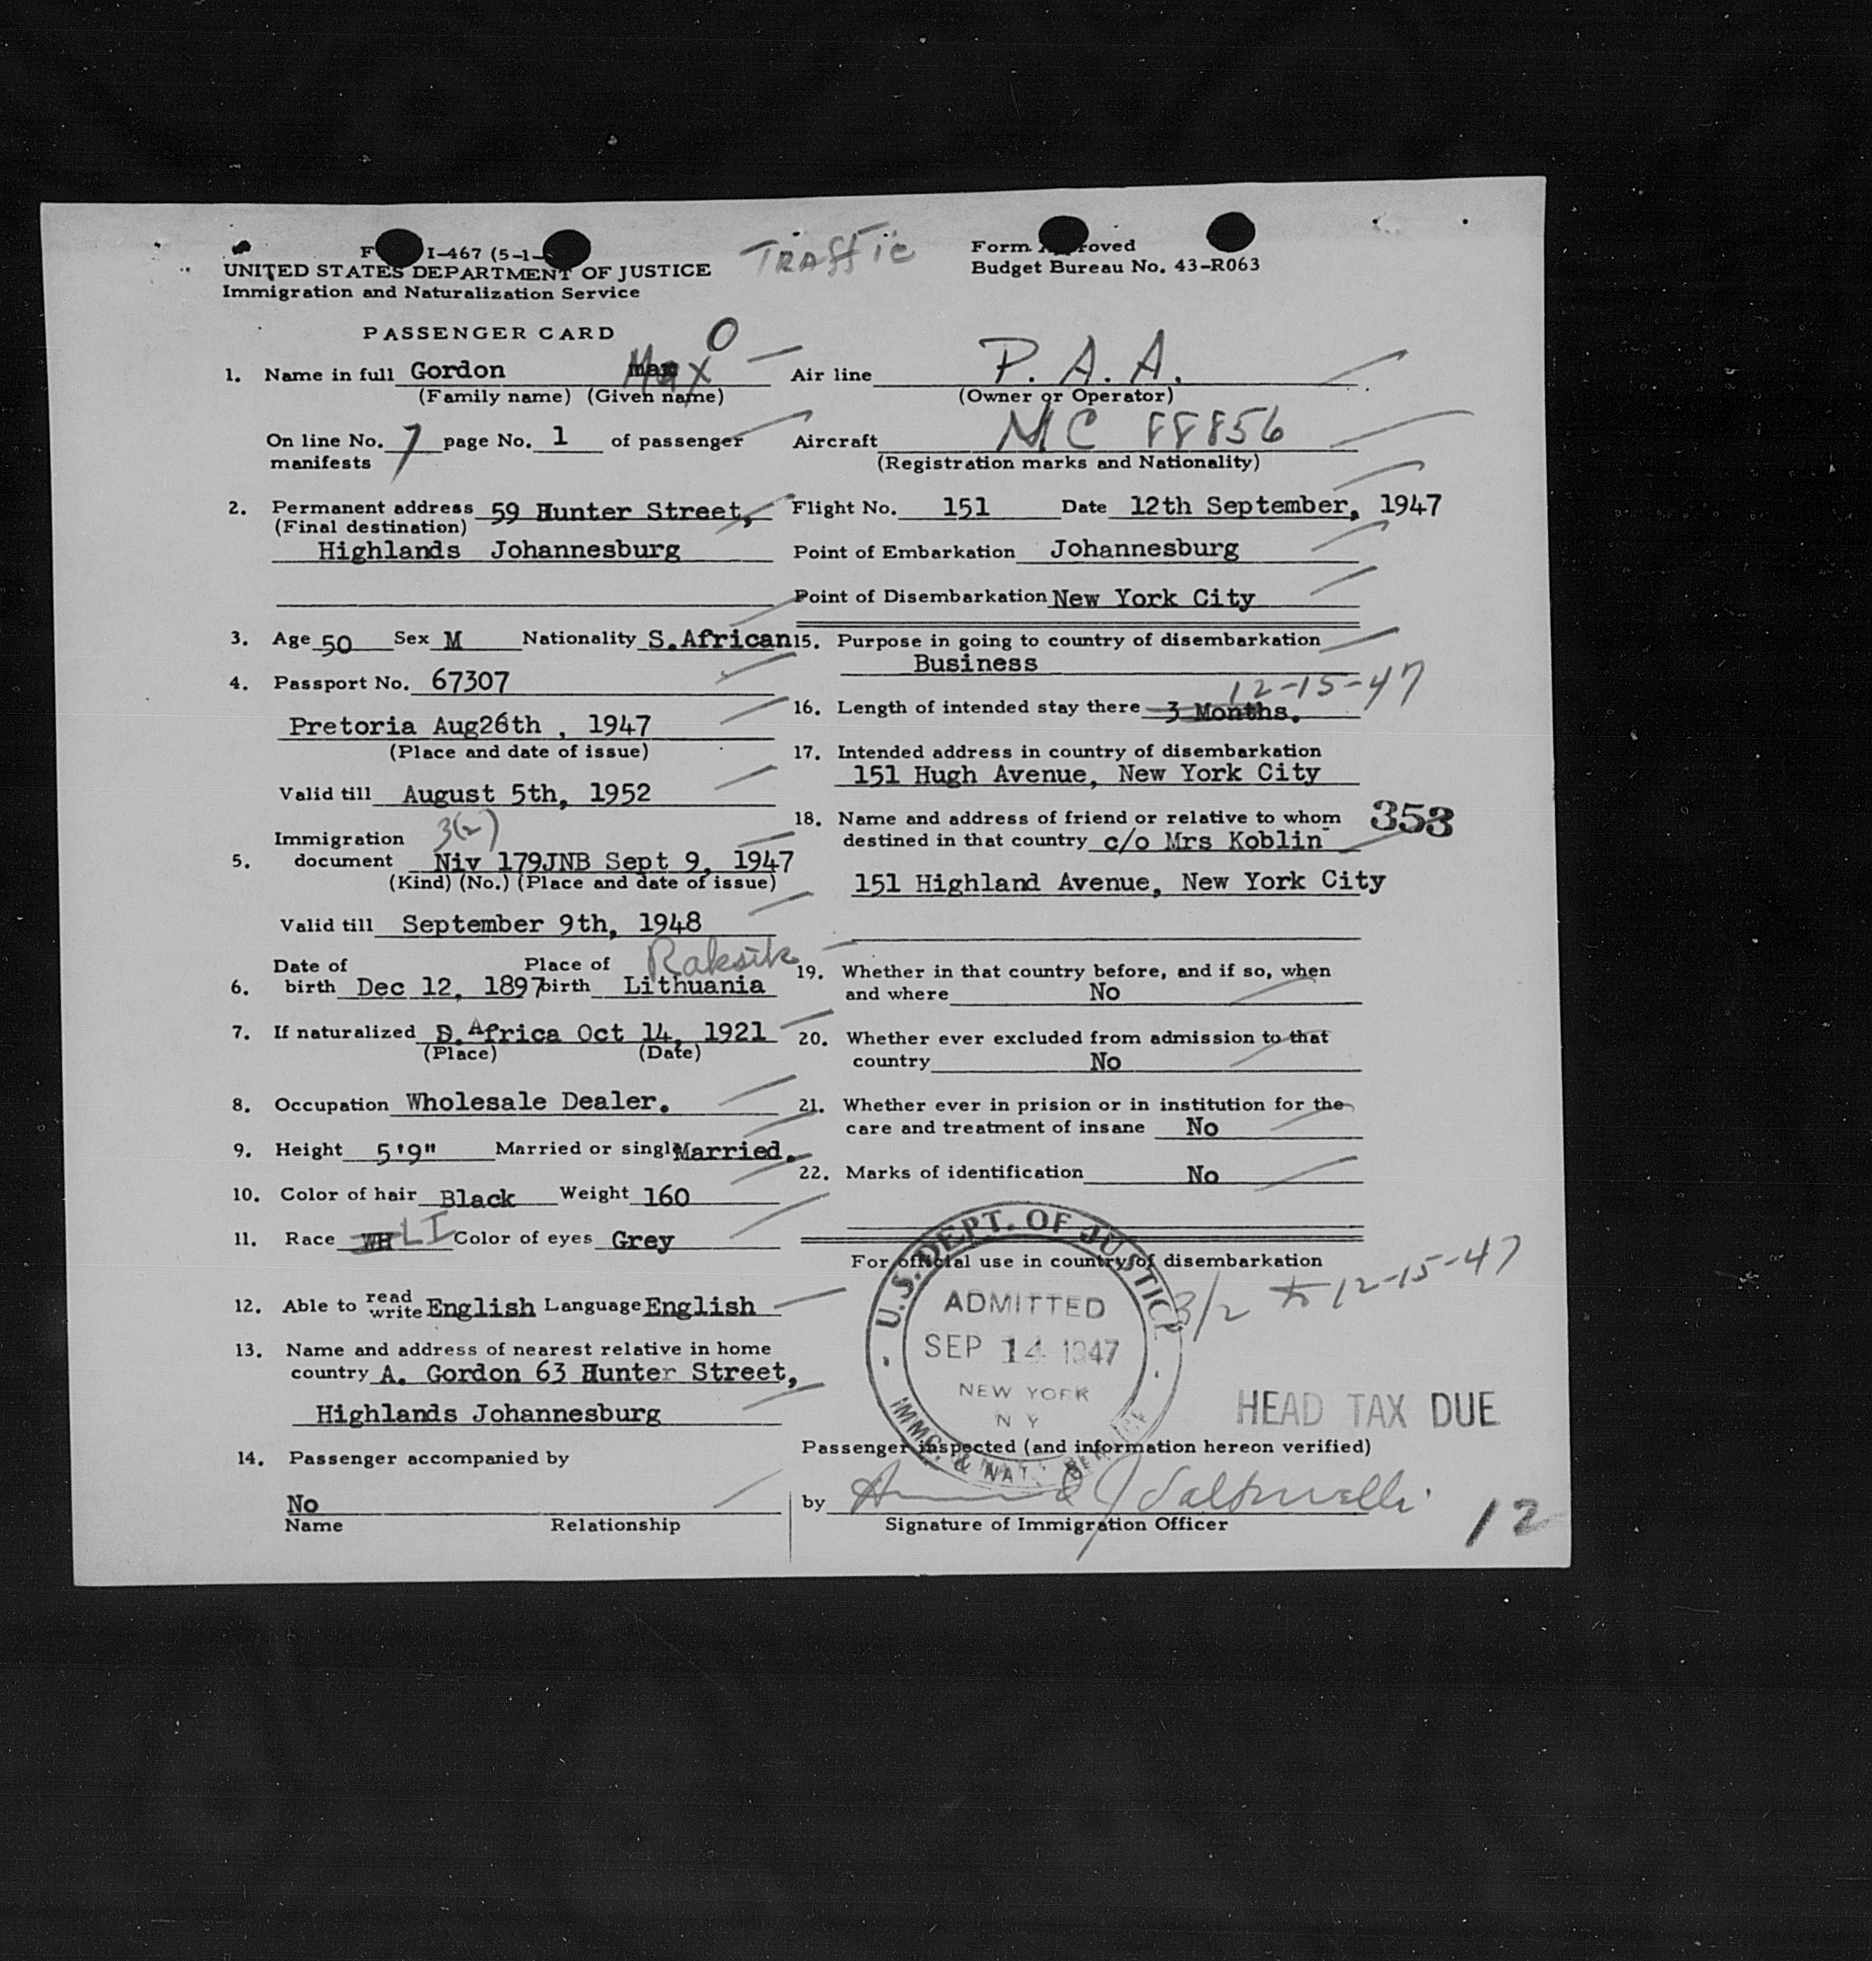 F I-467 (5-1-
UNITED STATES DEPARTMENT OF JUSTICE
Immigration and Naturalization Service
Traffic
Form oved
Budget Bureau No. 43-R063
PASSENGER CARD
O
1. Name in full Gordon Max
(Family name) (Given name)
On line No. 7 page No. 1 of passenger
manifests
2. Permanent address 59 Hunter Street,
(Final destination)
Highlands Johannesburg
3. Age 50 Sex M Nationality S.African
4. Passport No. 67307
Pretoria Aug26th , 1947
(Place and date of issue)
Valid till August 5th, 1952
Immigration 3(2)
5. document Niv 179JNB Sept 9, 1947
(Kind) (No.) (Place and date of issue)
Valid till September 9th, 1948
Date of Place of Raksik
6. birth Dec 12, 1897 birth Lithuania
7. If naturalized S. Africa Oct 14, 1921
(Place) (Date)
8. Occupation Wholesale Dealer.
9. Height 5'9" Married or singl Married.
10. Color of hair Black Weight 160
11. Race WH LI Color of eyes Grey
12. Able to read write English Language English
13. Name and address of nearest relative in home
country A. Gordon 63 Hunter Street,
Highlands Johannesburg
14. Passenger accompanied by
No
Name Relationship
Air line P. A. A.
(Owner or Operator)
Aircraft NC 88856
(Registration marks and Nationality)
Flight No. 151 Date 12th September, 1947
Point of Embarkation Johannesburg
Point of Disembarkation New York City
15. Purpose in going to country of disembarkation
Business
12-15-47
16. Length of intended stay there 3 Months.
17. Intended address in country of disembarkation
151 Hugh Avenue, New York City
18. Name and address of friend or relative to whom
destined in that country c/o Mrs Koblin
353
151 Highland Avenue, New York City
19. Whether in that country before, and if so, when
and where No
20. Whether ever excluded from admission to that
country No
21. Whether ever in prision or in institution for the
care and treatment of insane No
22. Marks of identification No
For official use in country of disembarkation
U.S. DEPT. OF JUSTICE
ADMITTED
SEP 14 1947
NEW YORK
N Y
IMMG. & NAT.
3/2 to 12-15-47
HEAD TAX DUE
Passenger inspected (and information hereon verified)
by
Signature of Immigration Officer
12